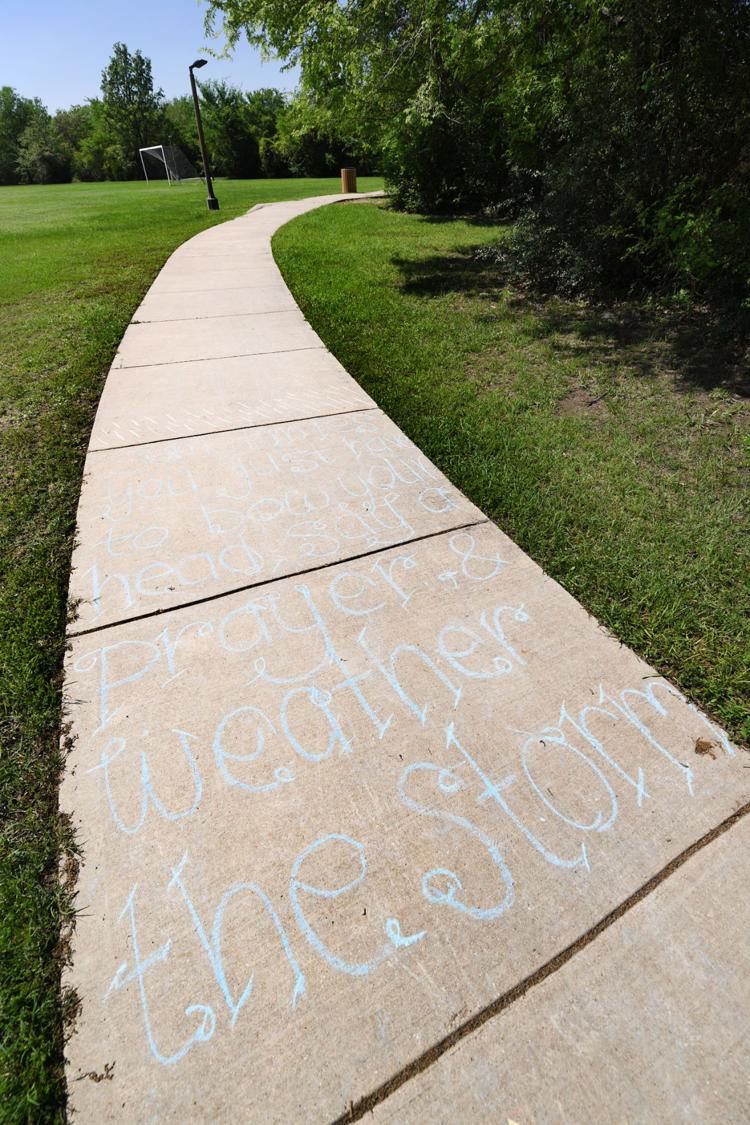 you just have
to bow your
head, say a
Prayer, &
weather
the Storm